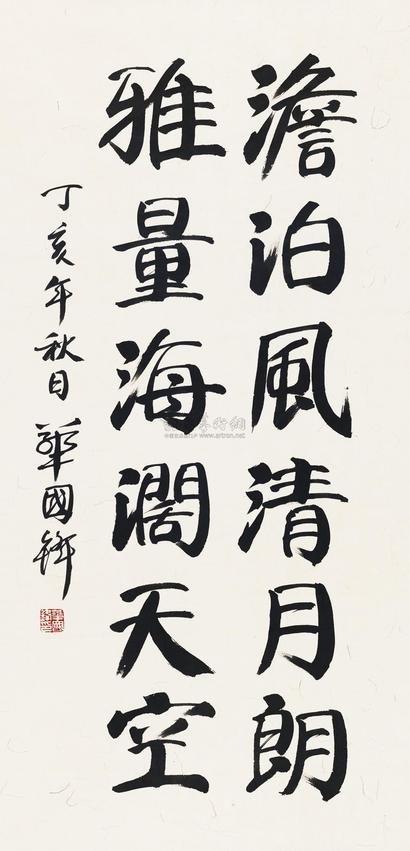 澹泊風清月朗
雅量海濶天空
丁亥年秋日 華國鋒
www.artron.net